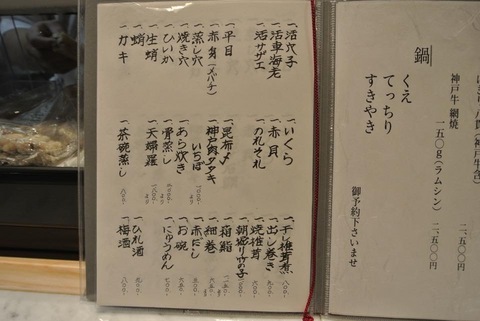 神戸牛 網焼
一五〇g(ラムシン) 二、五〇〇円
二、五〇〇円
鍋
くえ
てっちり
すきやき
御予約下さいませ
一、活穴子
一、活車海老
一、活サザエ
一、平目
一、赤身(メバチ)
一、蒸し穴
一、焼き穴
一、ひいか
一、生蛸
一、蛸
一、ガキ
一、いくら
一、赤貝
一、のれそれ
一、昆布〆
いちぼ
一、神戸肉タタキ
一、あら炊き
一、骨蒸し
一、天婦羅
一、茶碗蒸し 八〇〇.
一、干し椎茸煮 八〇〇.
一、出し巻き
一、焼椎茸
一、朝堀り竹の子
一、箱鮨
一、細巻
一、赤だし
一、お碗
一、にゅうめん
一、ひれ酒
一、梅酒